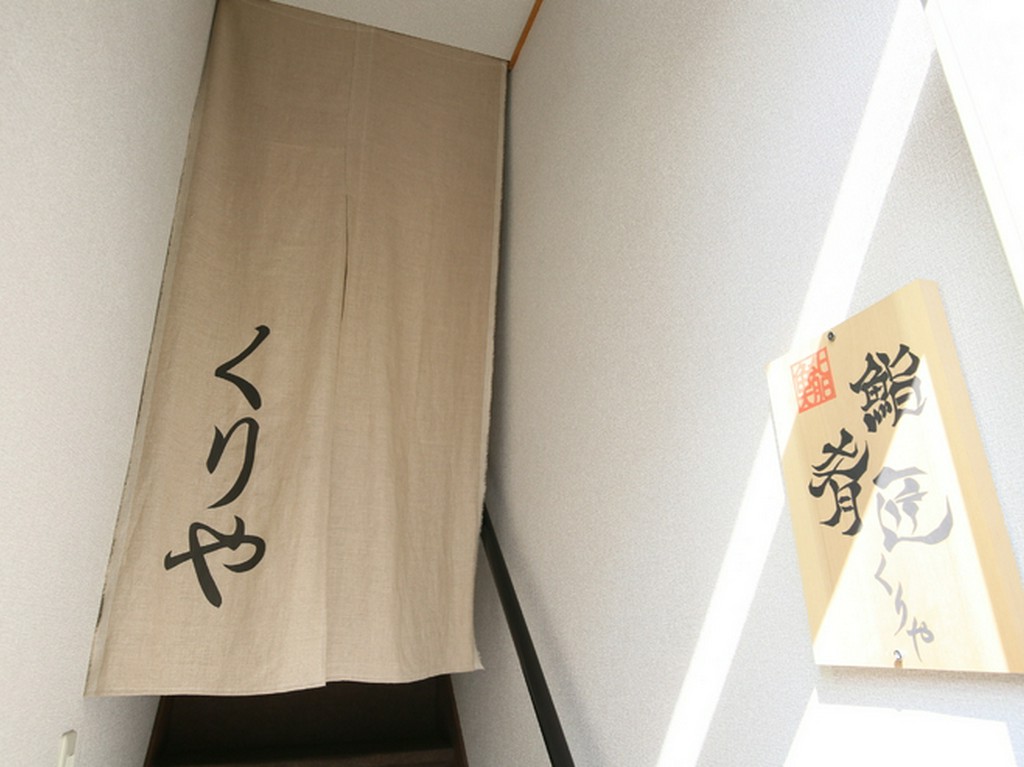 くりや
鮨
肴
匠
くりや